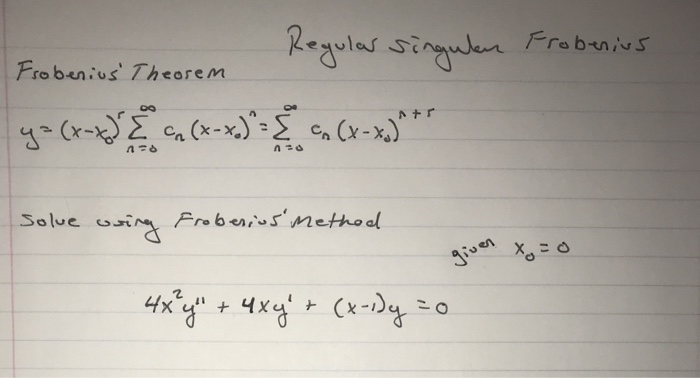 Regular singular Frobenius
Frobenius' Theorem
y = (x-x₀)^r ∑_{n=0}^{∞} cₙ (x-x₀)^n = ∑_{n=0}^{∞} cₙ (x-x₀)^{n+r}
Solve using Frobenius' Method
given x₀ = 0
4x²y'' + 4xy' + (x-1)y = 0